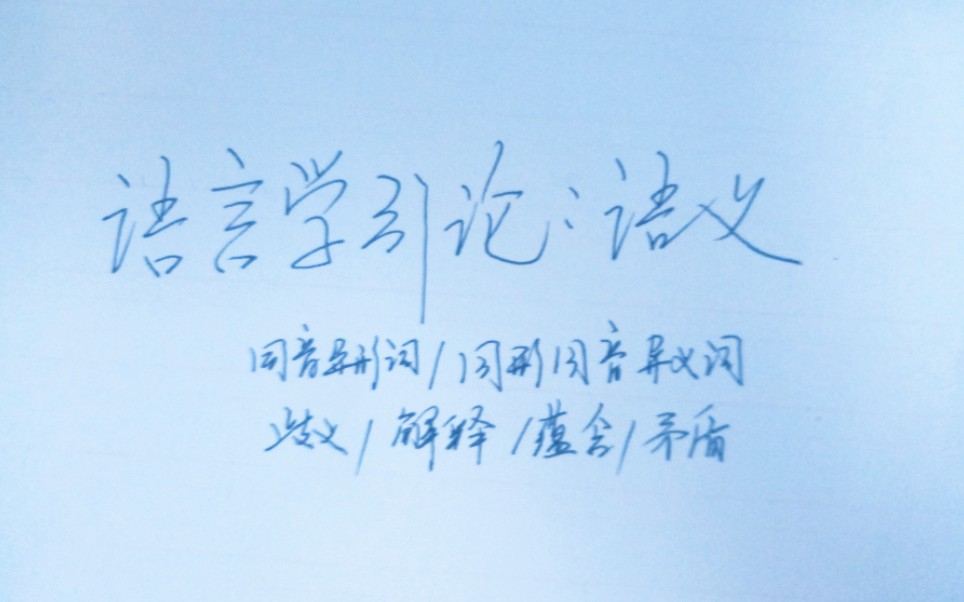 语言学引论:语义
同音异形词/同形同音异义词
歧义/解释/蕴含/矛盾